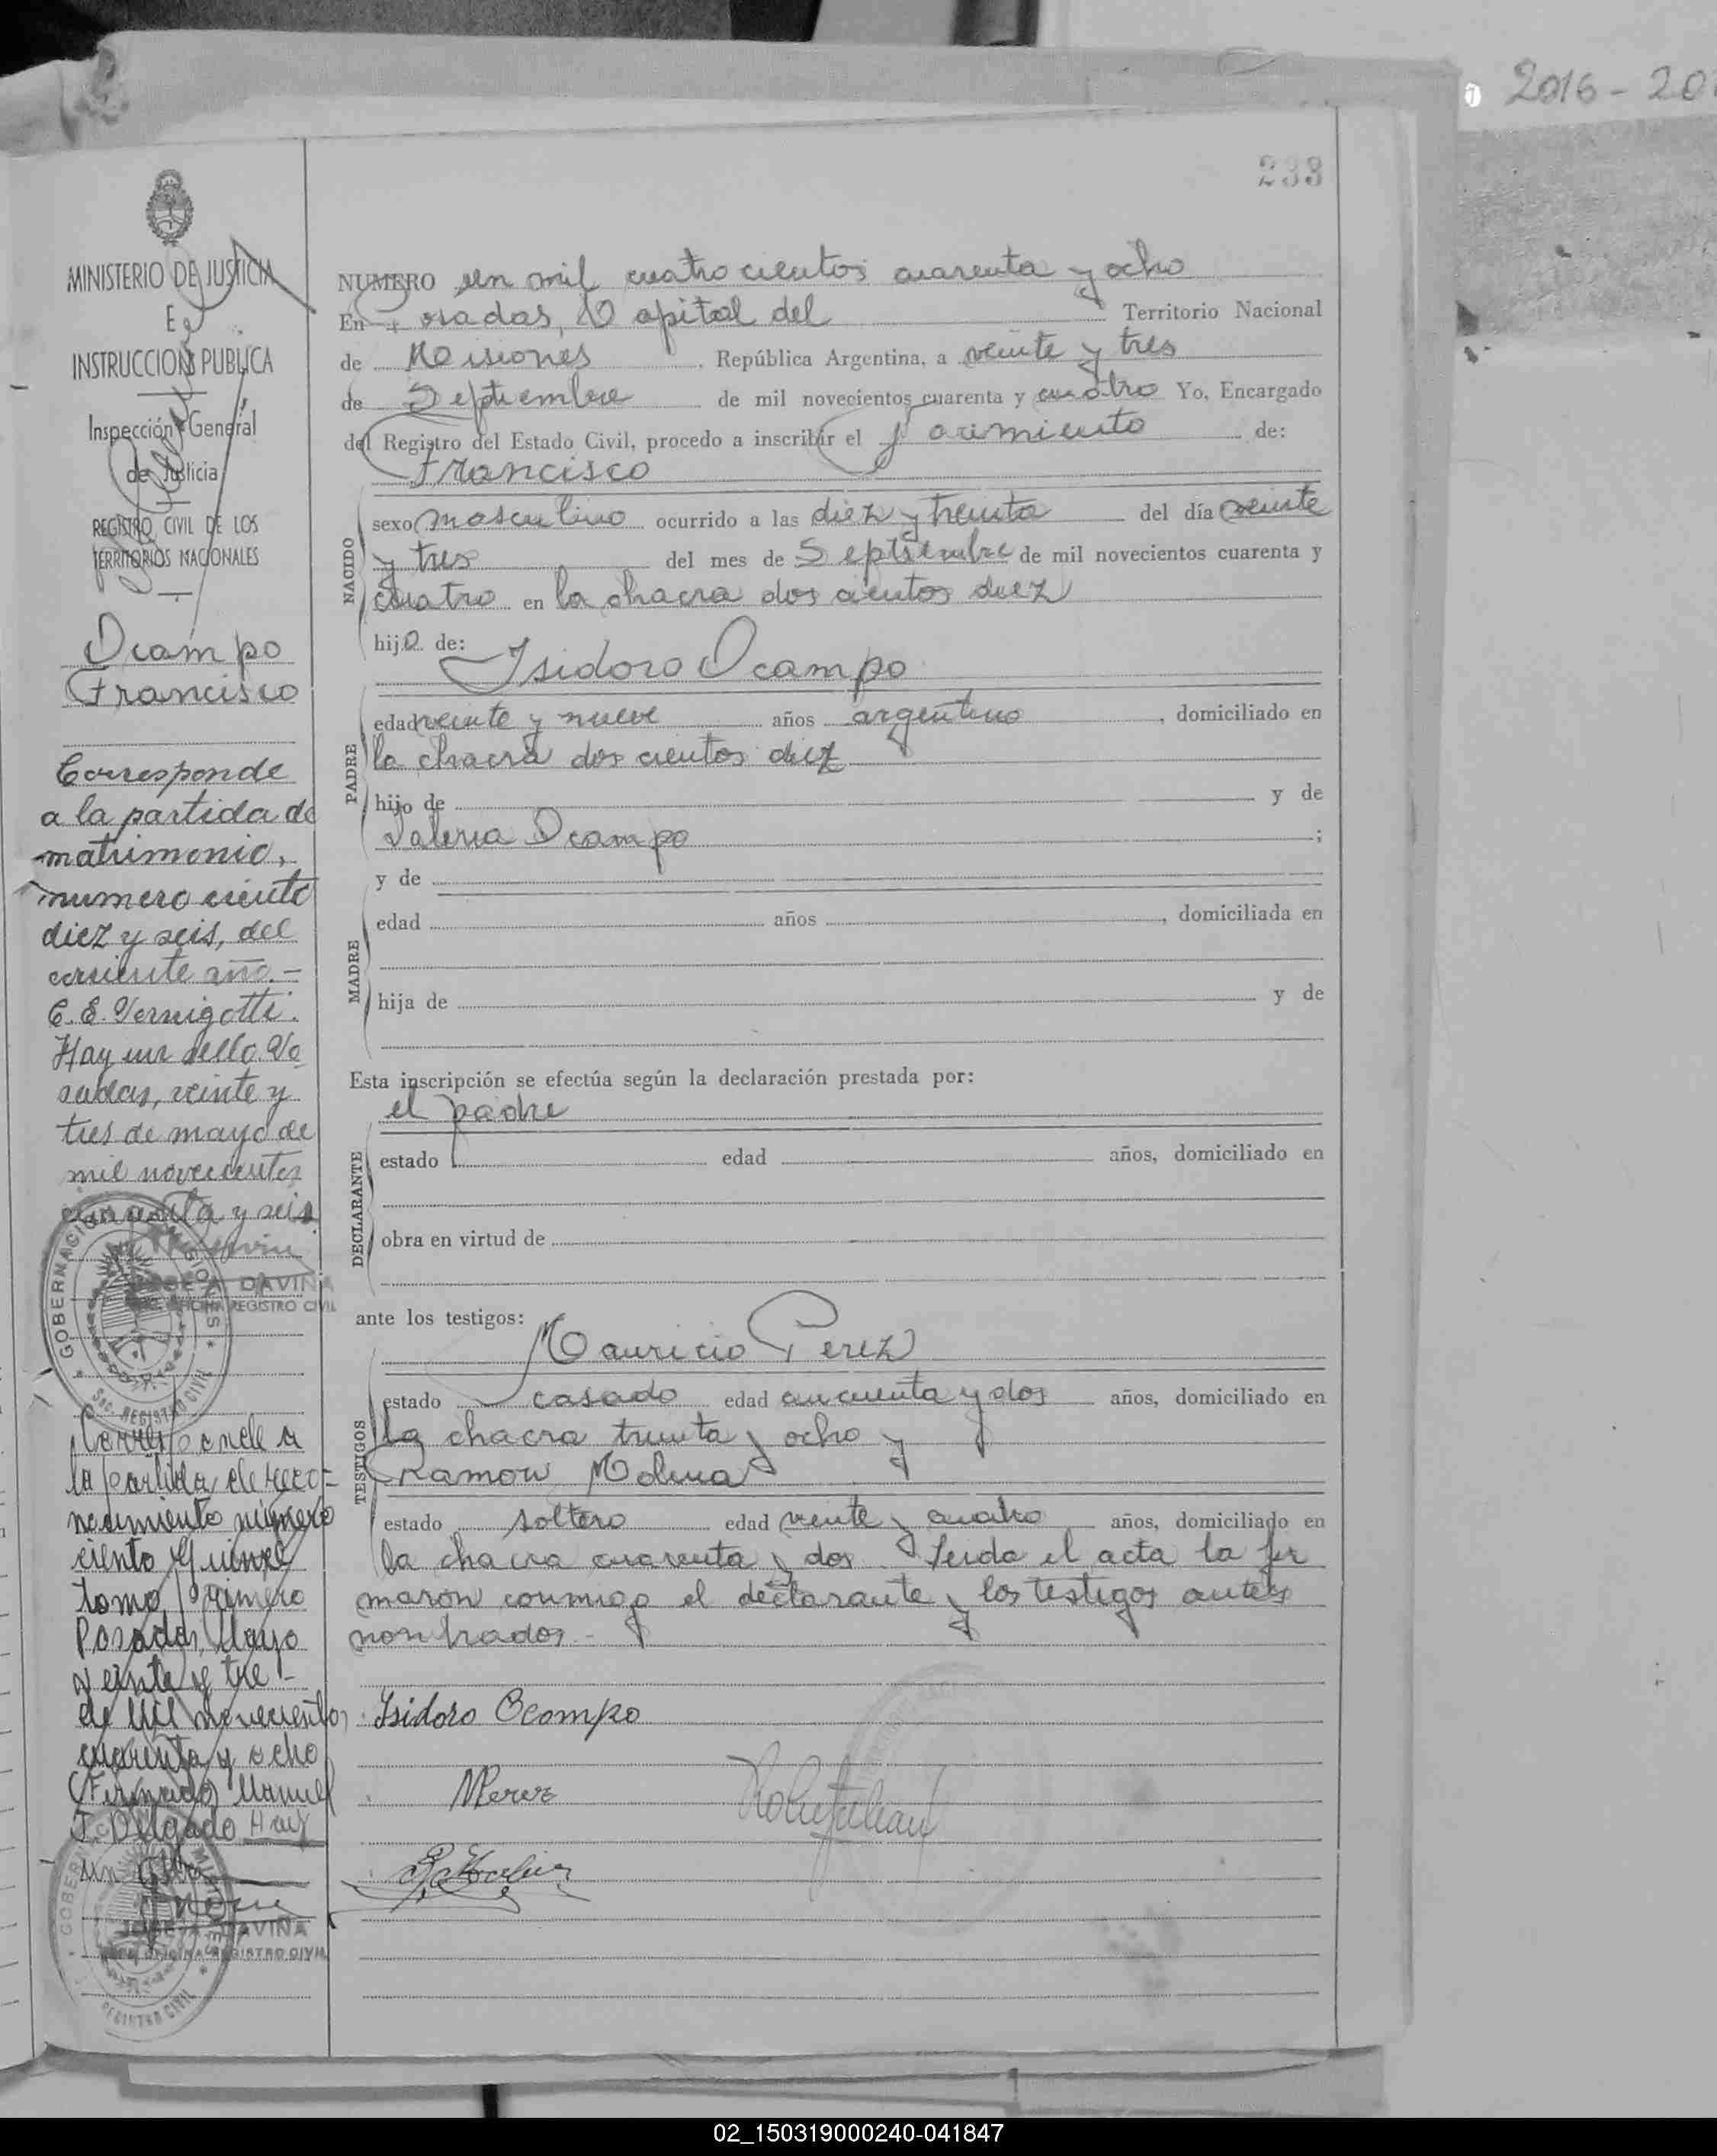 2016-20
233
MINISTERIO DE JUSTICIA
E
INSTRUCCION PUBLICA
Inspección General
de Justicia
REGISTRO CIVIL DE LOS
TERRITORIOS NACIONALES
Ocampo
Francisco
Corresponde
a la partida de
matrimonio,
numero ciento
diez y seis, del
corriente año.-
C. E. Vernigotti.
Hay un sello Po
sadas, veinte y
tres de mayo de
mil novecientos
cincuenta y seis
JOSE A. DAVIÑA
OFICINA REGISTRO CIVIL
GOBERNACION
REGISTRO CIVIL
Corresponde a
la partida de reco-
nocimiento número
ciento quince
tomo primero
Posadas, Mayo
veinte y tre-
de mil novecientos
cuarenta y ocho
(Firmado) Manuel
J. Delgado Hay
un
JOSE A. DAVIÑA
OFICINA REGISTRO CIVIL
REGISTRO CIVIL
NUMERO un mil cuatro cientos cuarenta y ocho
En Posadas, Capital del Territorio Nacional
de Misiones, República Argentina, a veinte y tres
de Septiembre de mil novecientos cuarenta y cuatro Yo, Encargado
del Registro del Estado Civil, procedo a inscribir el nacimiento de:
Francisco
NACIDO
sexo masculino ocurrido a las diez y treinta del día veinte
y tres del mes de Septiembre de mil novecientos cuarenta y
cuatro en la chacra dos cientos diez
hijo de:
Isidoro Ocampo
PADRE
edad veinte y nueve años argentino, domiciliado en
la chacra dos cientos diez
hijo de y de
Valeria Ocampo ;
y de
MADRE
edad años, domiciliada en
hija de y de
Esta inscripción se efectúa según la declaración prestada por:
el padre
DECLARANTE
estado edad años, domiciliado en
obra en virtud de
ante los testigos:
Mauricio Perez
TESTIGOS
estado casado edad cincuenta y dos años, domiciliado en
la chacra treinta y ocho y
Ramon Molina
estado soltero edad veinte y cuatro años, domiciliado en
la chacra cuarenta y dos. Leida el acta la fir
maron conmigo el declarante y los testigos antes
nombrados.-
Isidoro Ocampo
MPerez
02_150319000240-041847